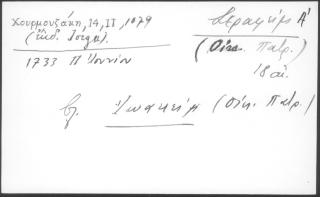 Χουρμουζάκη, 14, II, 1079
(ἔκδ. Ἰόργα).
1733 Π Ἰουνίου
Σεραφείμ Α΄
(Οἰκ. Πατρ.)
18 αἰ.
βλ. Ἰωακείμ (Οἰκ. Πατρ.)